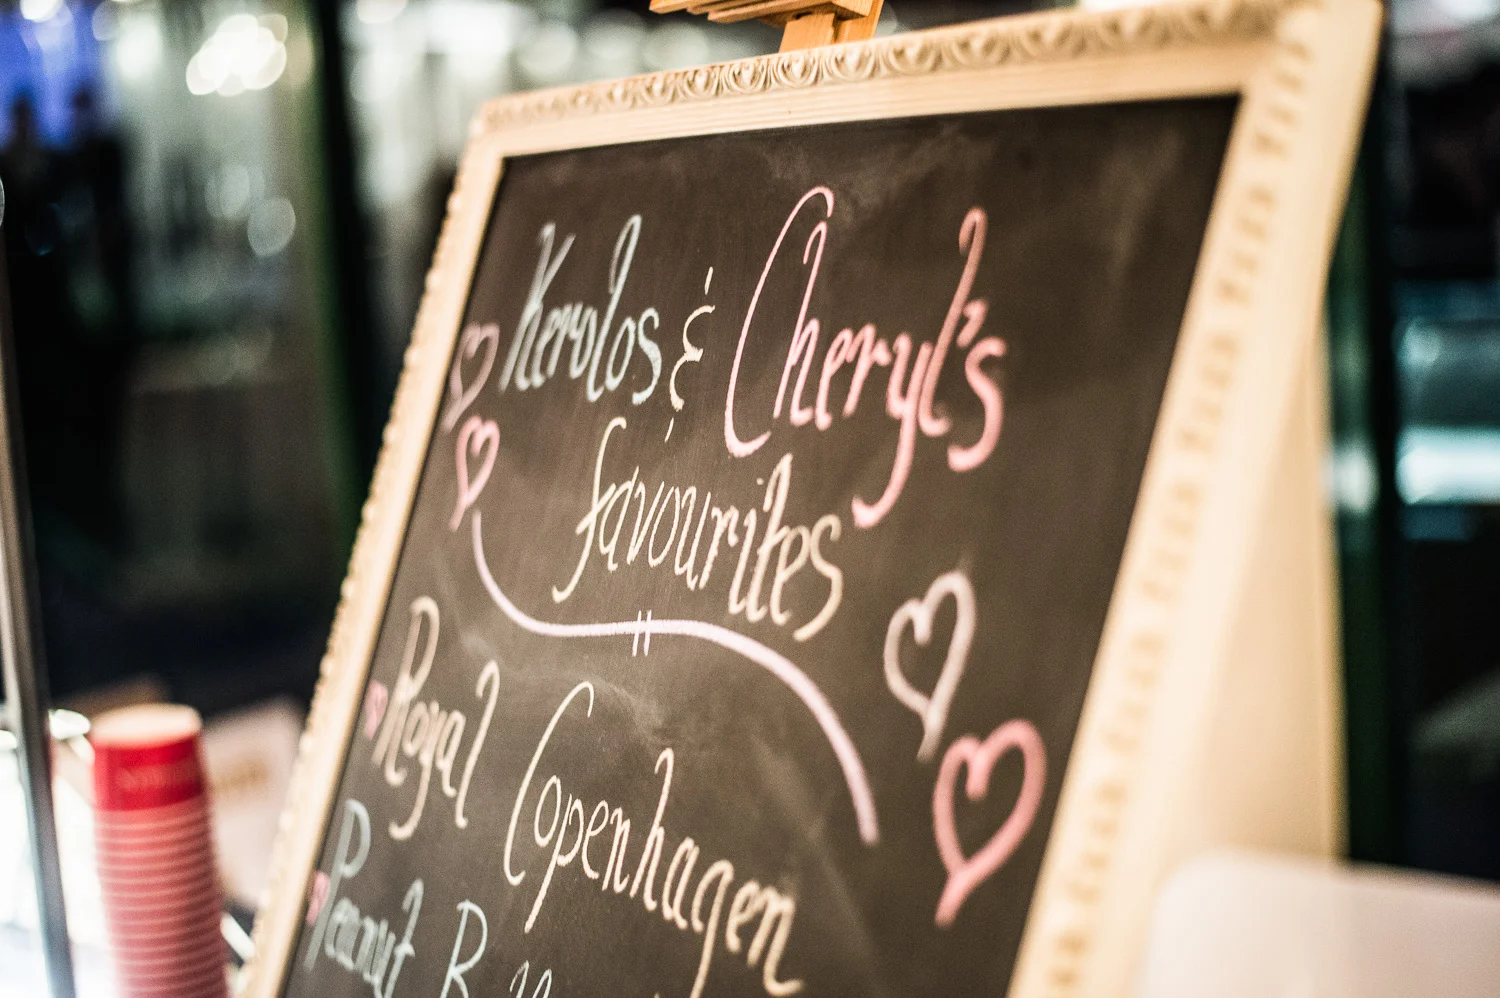 Kerolos & Cheryl's
favourites
Royal Copenhagen
Peanut